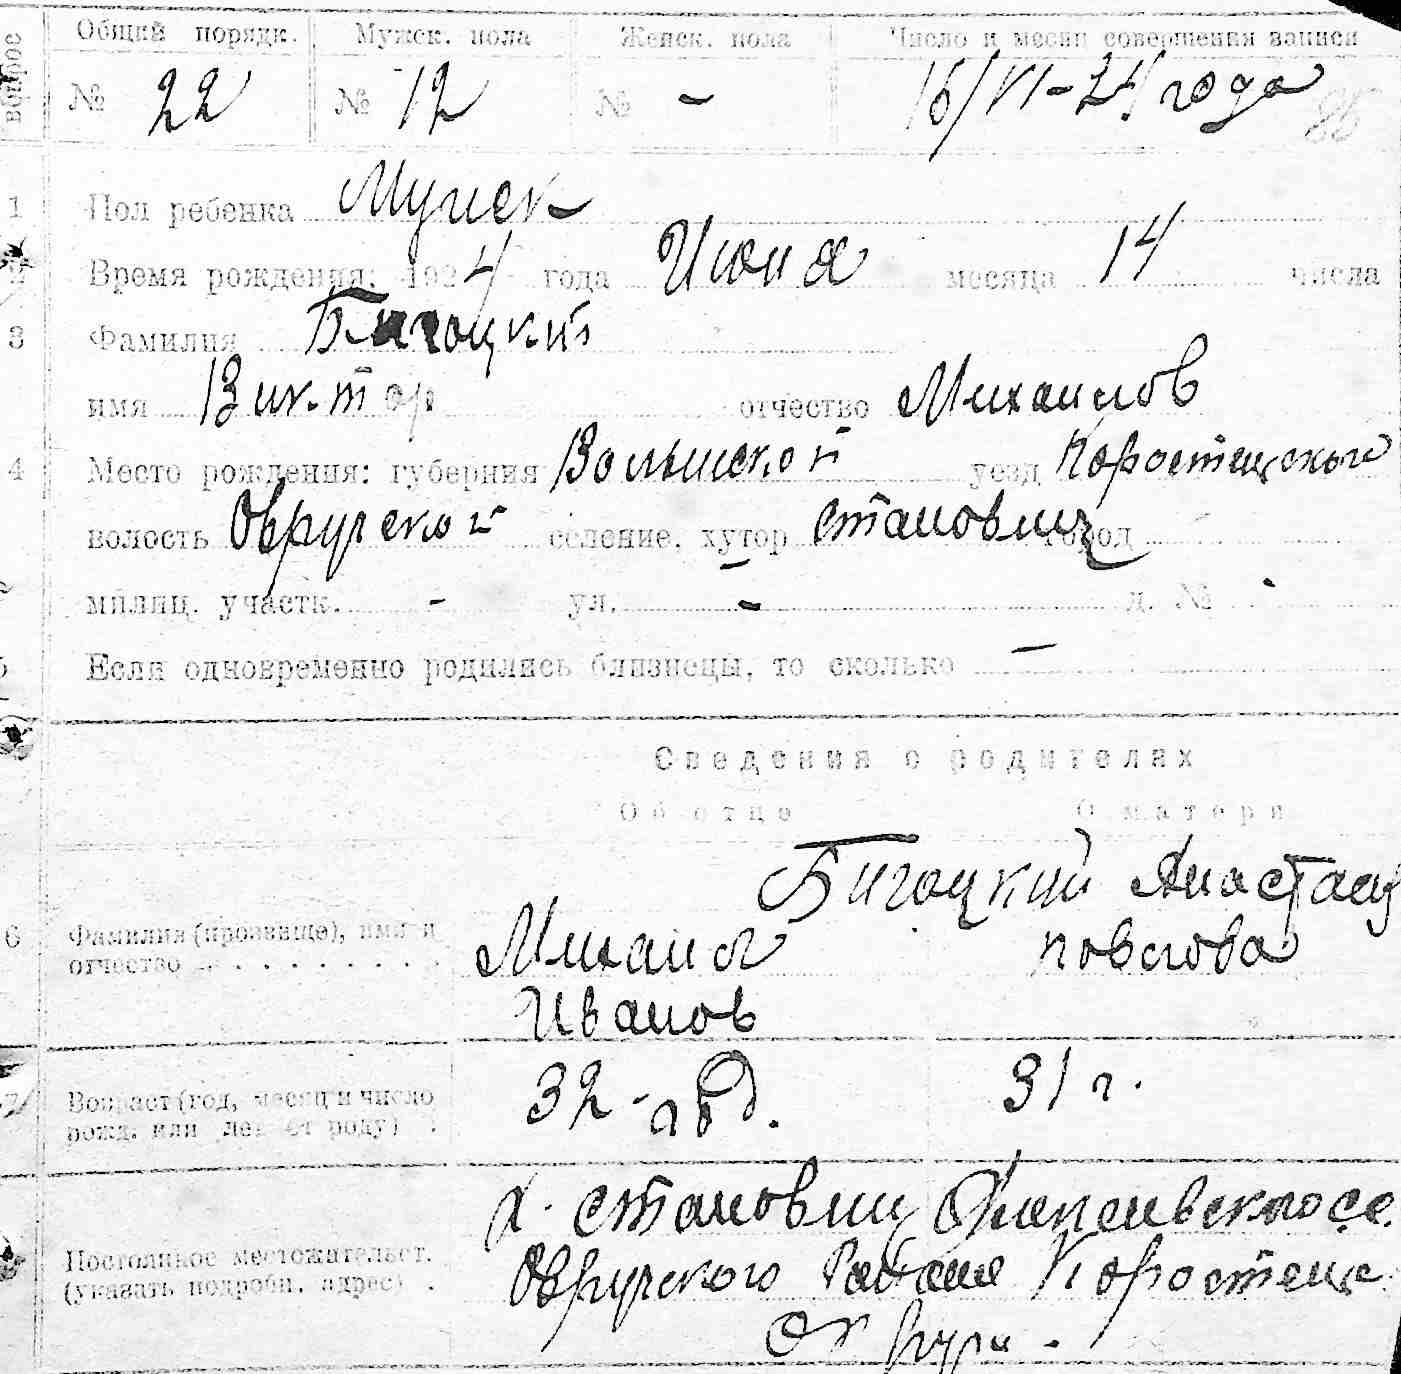 вопрос
Общий порядк. Мужск. пола Женск. пола Число и месяц совершения записи
№ 22 № 12 № - 16/VI-24 года
1 Пол ребенка Мужск-
2 Время рождения: 1924 года Июня месяца 14 числа
3 Фамилия Бигоцкий
имя Виктор отчество Михайлов
4 Место рождения: губерния Волынской уезд Коростенского
волость Овручской селение, хутор Становищ город
милиц. участк. - ул. - д. №
5 Если одновременно родились близнецы, то сколько —
Сведения о родителях
Об отце О матери
Бигоцкий Анастаси
6 Фамилия (прозвище), имя и отчество Михаил Павлова
Иванов
7 Возраст (год, месяц и число рожд. или лет от роду) 32-год. 31 г.
Постоянное местожительст. (указать подробн. адрес)
х. Становищ
Овручского Района Коростенс
Округи.